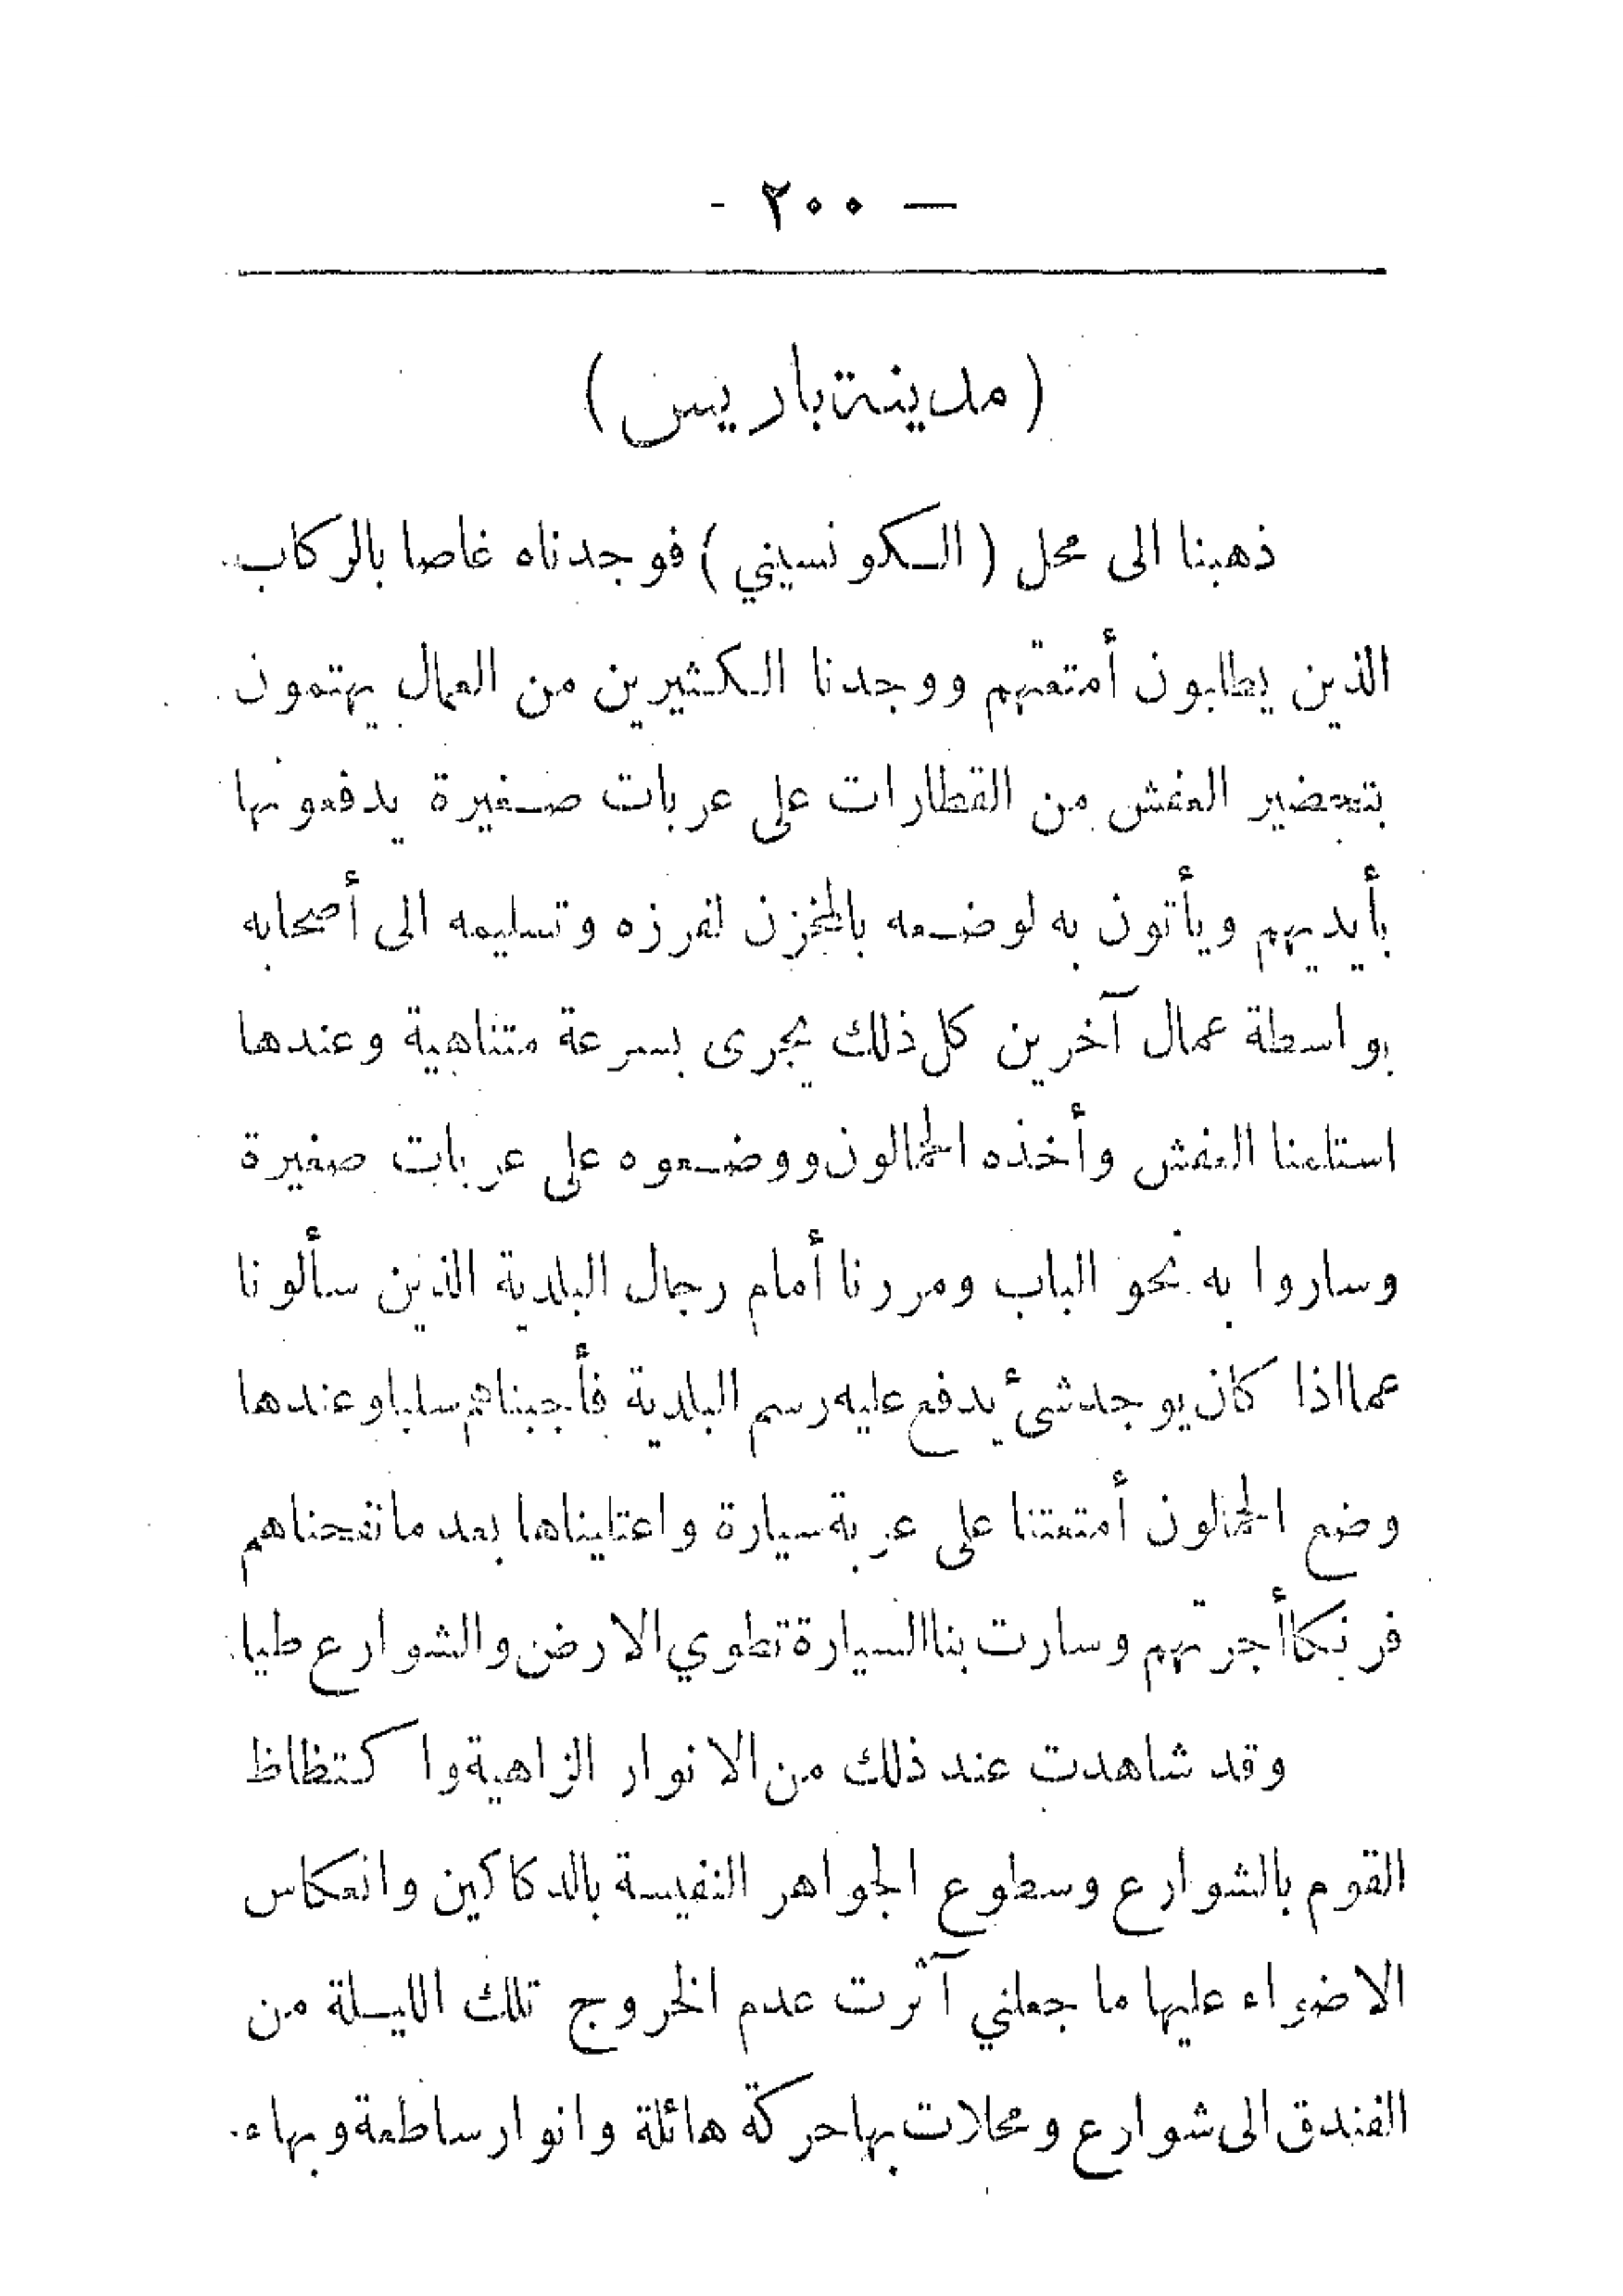 — ٢٠٠ -
( مدينة باريس )
ذهبنا الى محل ( الكونسيني ) فوجدناه غاصا بالركاب
الذين يطلبون أمتعتهم ووجدنا الكثيرين من العمال يهتمون
بتحضير العفش من القطارات على عربات صغيرة يدفعونها
بأيديهم ويأتون به لوضعه بالمخزن لفرزه وتسليمه الى أصحابه
بواسطة عمال آخرين كل ذلك يجرى بسرعة متناهية وعندها
استلمنا العفش وأخذه الحمالون ووضعوه على عربات صغيرة
وساروا به نحو الباب ومررنا أمام رجال البلدية الذين سألونا
عما اذا كان يوجد شئ يدفع عليه رسم البلدية فأجبناهم سلبا وعندها
وضع الحمالون أمتعتنا على عربة سيارة واعتليناها بعد ما نفحناهم
فرنكا أجرتهم وسارت بنا السيارة تطوي الارض والشوارع طيا
وقد شاهدت عند ذلك من الانوار الزاهية واكتظاظ
القوم بالشوارع وسطوع الجواهر النفيسة بالدكاكين وانعكاس
الاضواء عليها ما جعلني آثرت عدم الخروج تلك الليلة من
الفندق الى شوارع ومحلات بها حركة هائلة وانوار ساطعة وبهاء